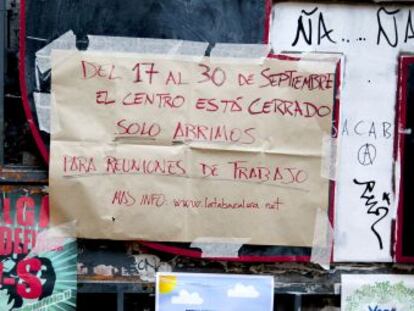 DEL 17 AL 30 DE SEPTIEMBRE
EL CENTRO ESTÁ CERRADO
SOLO ABRIMOS
PARA REUNIONES DE TRABAJO
MAS INFO: www.latabacalera.net
ÑA... ÑA
ACAB
LGA
S